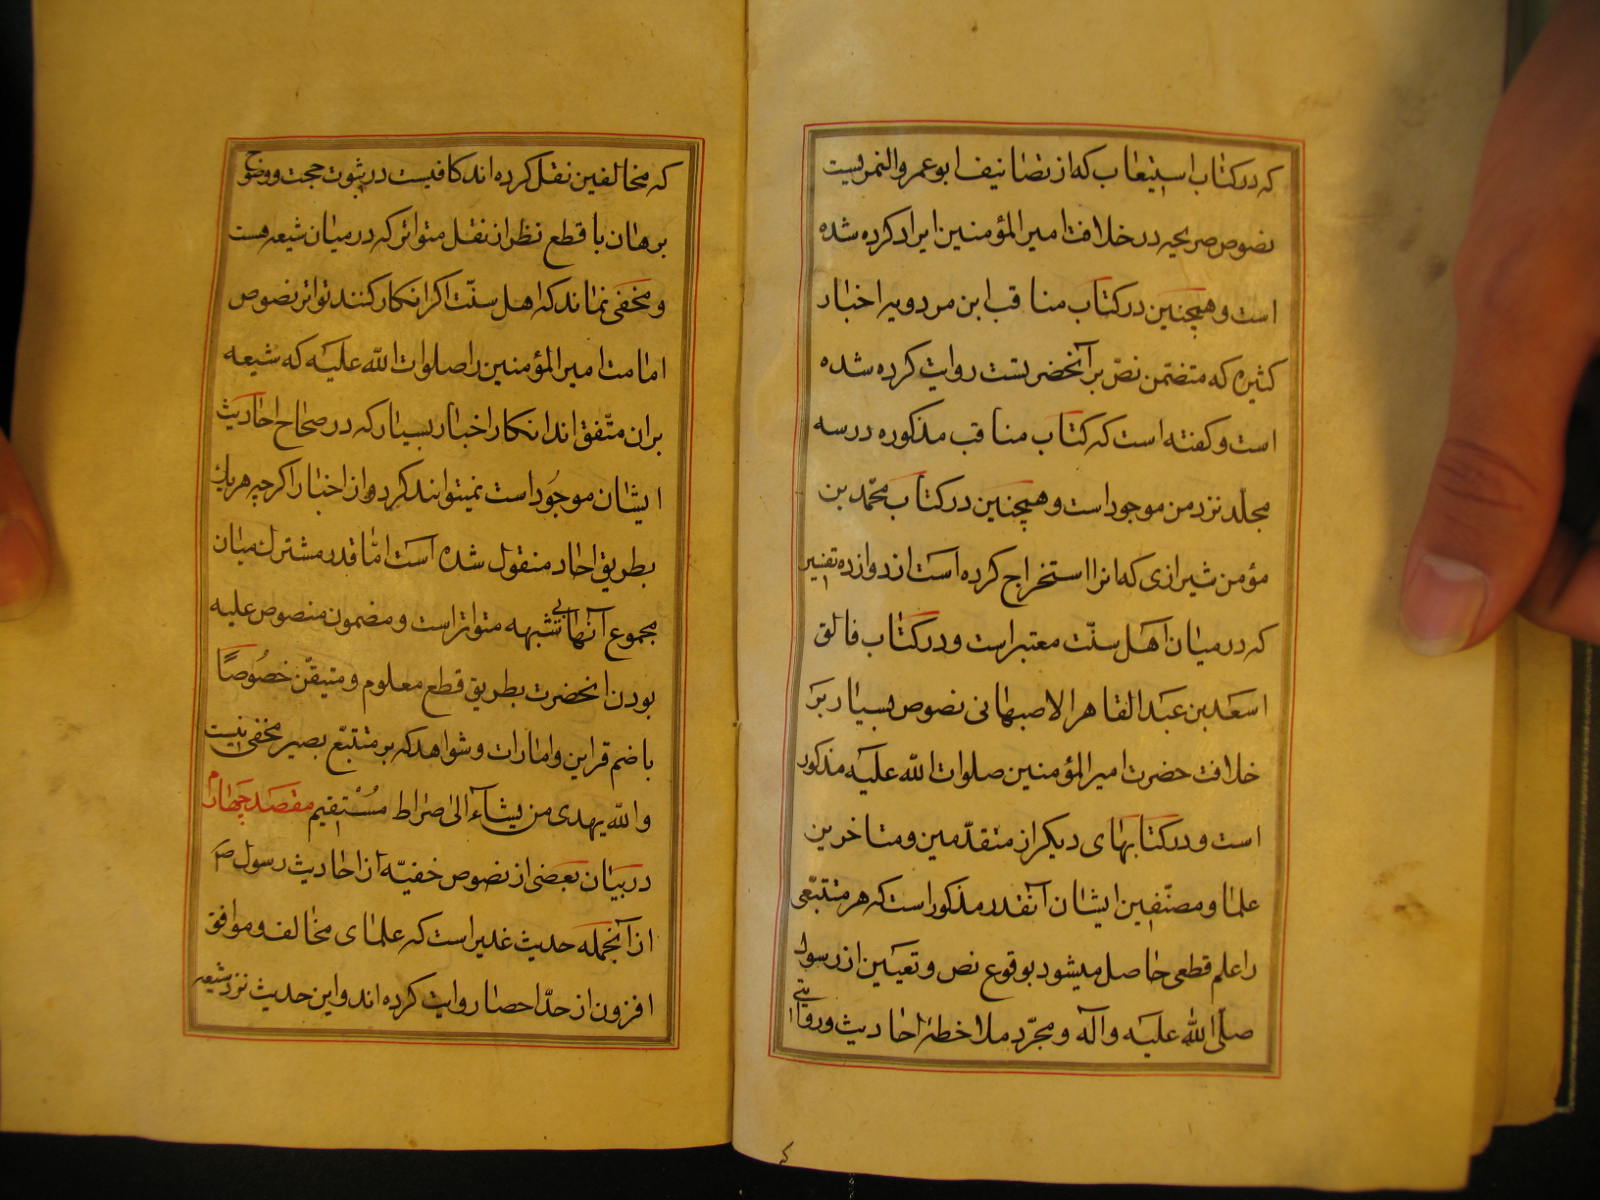 که در کتاب استیعاب که از تصانیف ابو عمرو النمریست
نصوص صریحه در خلافت امیر المؤمنین ایراد کرده شده
است و همچنین در کتاب مناقب ابن مردویه اخبار
کثیره که متضمن نصّ بر آنحضرتست روایت کرده شده
است و کفته است که کتاب مناقب مذکوره در سه
مجلّد نزد من موجود است و همچنین در کتاب محمّد بن
مؤمن شیرازی که انرا استخراج کرده است از دوازده تفسیر
که در میان اهل سنّت معتبر است و در کتاب فائق
اسعد بن عبد القاهر الاصبهانی نصوص بسیار بر
خلافت حضرت امیر المؤمنین صلوات اللّه علیه مذکور
است و در کتابهای دیکر از متقدّمین و متاخرین
علما و مصنّفین ایشان آنقدر مذکور است که هر متتبّعی
را علم قطعی حاصل میشود بوقوع نص و تعیین از رسول
صلّی اللّه علیه و آله و مجرّد ملاخطهٔ احادیث و روایاتی
که
که مخالفین نقل کرده اند کافیست در ثبوت حجت و وضوح
برهان با قطع نظر از نقل متواتر که در میان شیعه هست
و مخفی نماند که اهل سنّت اکر انکار کنند تواتر نصوص
امامت امیر المؤمنین را صلوات اللّه علیه که شیعه
بران متّفق اند انکار اخبار بسیار که در صحاح احادیث
ایشان موجُود است نمیتوانند کرد و از اخبار اکرچه هر یک
بطریق احاد منقول شده است امّا قدر مشترک میان
مجموع آنها بی شبهه متواتر است و مضمون منصوص علیه
بودن انحضرت بطریق قطع معلوم و متیقّن خصُوصًا
باضم قراین و امارات و شواهد که بر متتبّع بصیر مخفی نیست
و اللّه یهدی من یشآء الی صراط مُسْتقیم مقصد چهارم
در بیان بعضی از نصوص خفیّه از احادیث رسول ص
از آنجمله حدیث غدیر است که علمای مخالف و موافق
افزون از حدّ احصا روایت کرده اند و این حدیث نزد شیعه